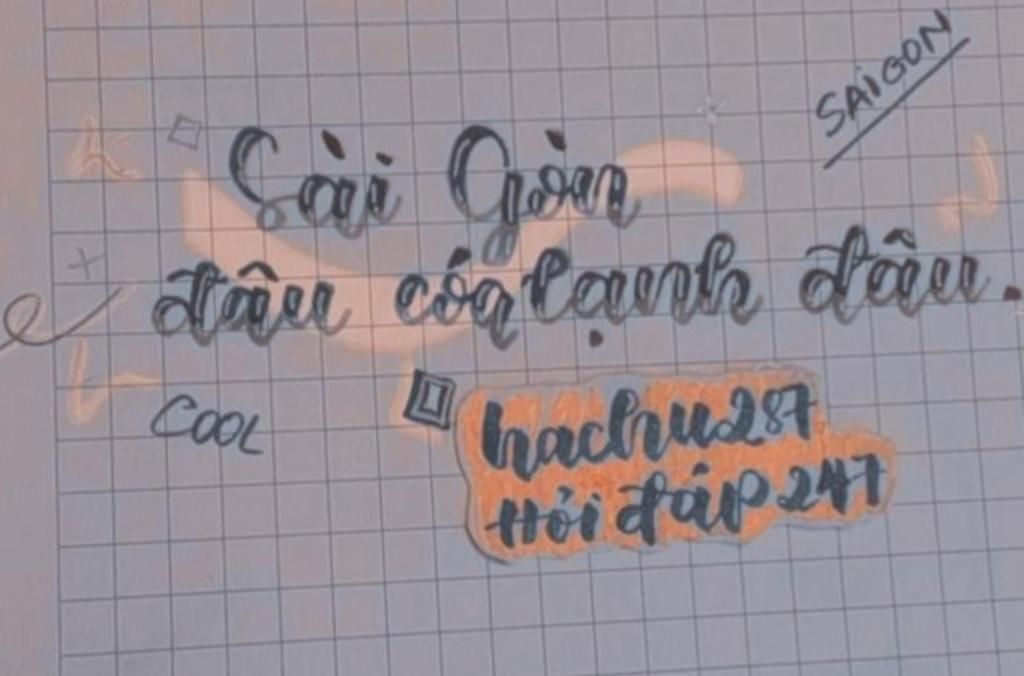 SAiGON
Sài Gòn
đâu có lạnh đâu.
COOL
hachu287
Hỏi đáp 247